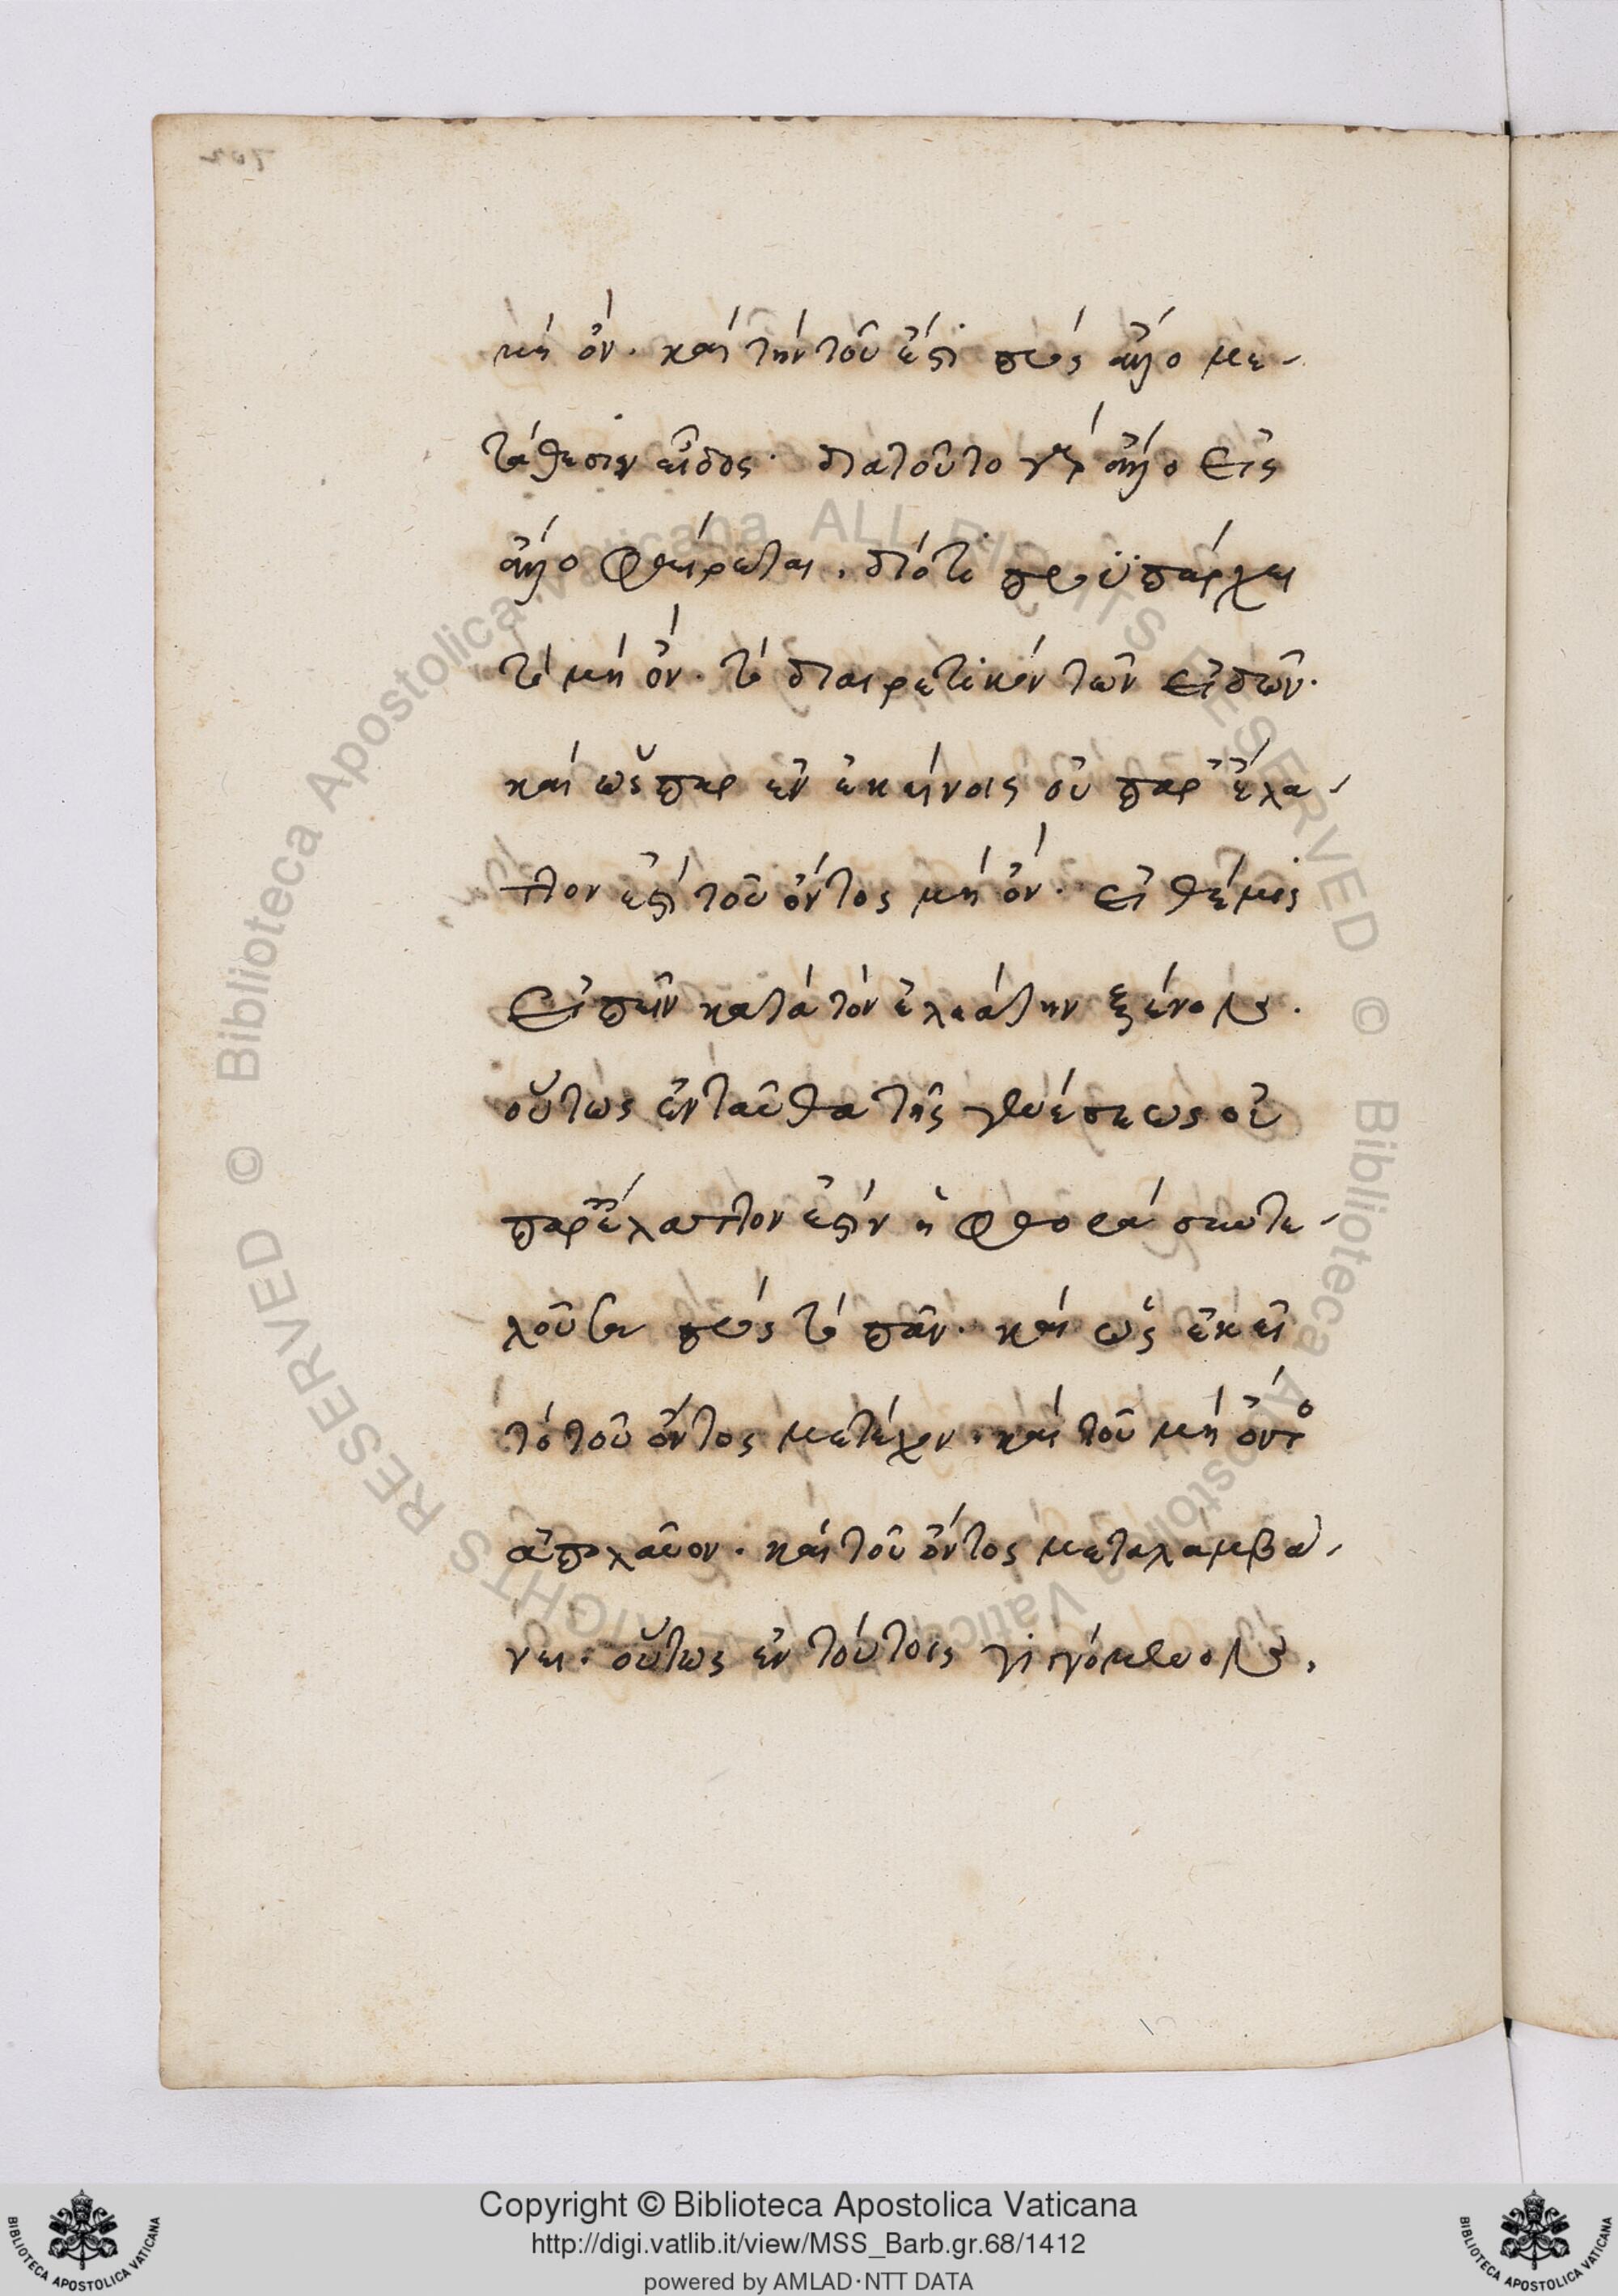 μὴ ὄν· καὶ τὴν τοῦ ἐπὶ πρὸς ἄλλο με-
τάθεσιν εἶδος· διατοῦτο γὰρ ἄλλο εἰς
ἄλλο φθείρεται, διότι προϋπάρχει
τὸ μὴ ὄν· τὸ διαιρετικὸν τῶν εἰδῶν·
καὶ ὥσπερ ἐν ἐκείνοις οὐ παρ' ἔλα-
ττον ἐστὶ τοῦ ὄντος μὴ ὄν· εἰ θέμις
εἰπεῖν κατὰ τὸν ἐλεάτην ξένον·
οὕτως ἐνταῦθα τῆς γενέσεως οὐ
παρ' ἔλαττον ἐστὶν ἡ φθορὰ συντε-
λοῦσα πρὸς τὸ πᾶν· καὶ ὡς ἐκεῖ
τὸ τοῦ ὄντος μετέχον, καὶ τοῦ μὴ ὄντος
ἀπολαῦον· καὶ τοῦ ὄντος μεταλαμβά-
νει· οὕτως ἐν τούτοις γιγνόμενον,
Copyright © Biblioteca Apostolica Vaticana
http://digi.vatlib.it/view/MSS_Barb.gr.68/1412
powered by AMLAD·NTT DATA
BIBLIOTECA APOSTOLICA VATICANA
BIBLIOTECA APOSTOLICA VATICANA
© Biblioteca Apostolica Vaticana ALL RIGHTS RESERVED
© Biblioteca Apostolica Vaticana ALL RIGHTS RESERVED